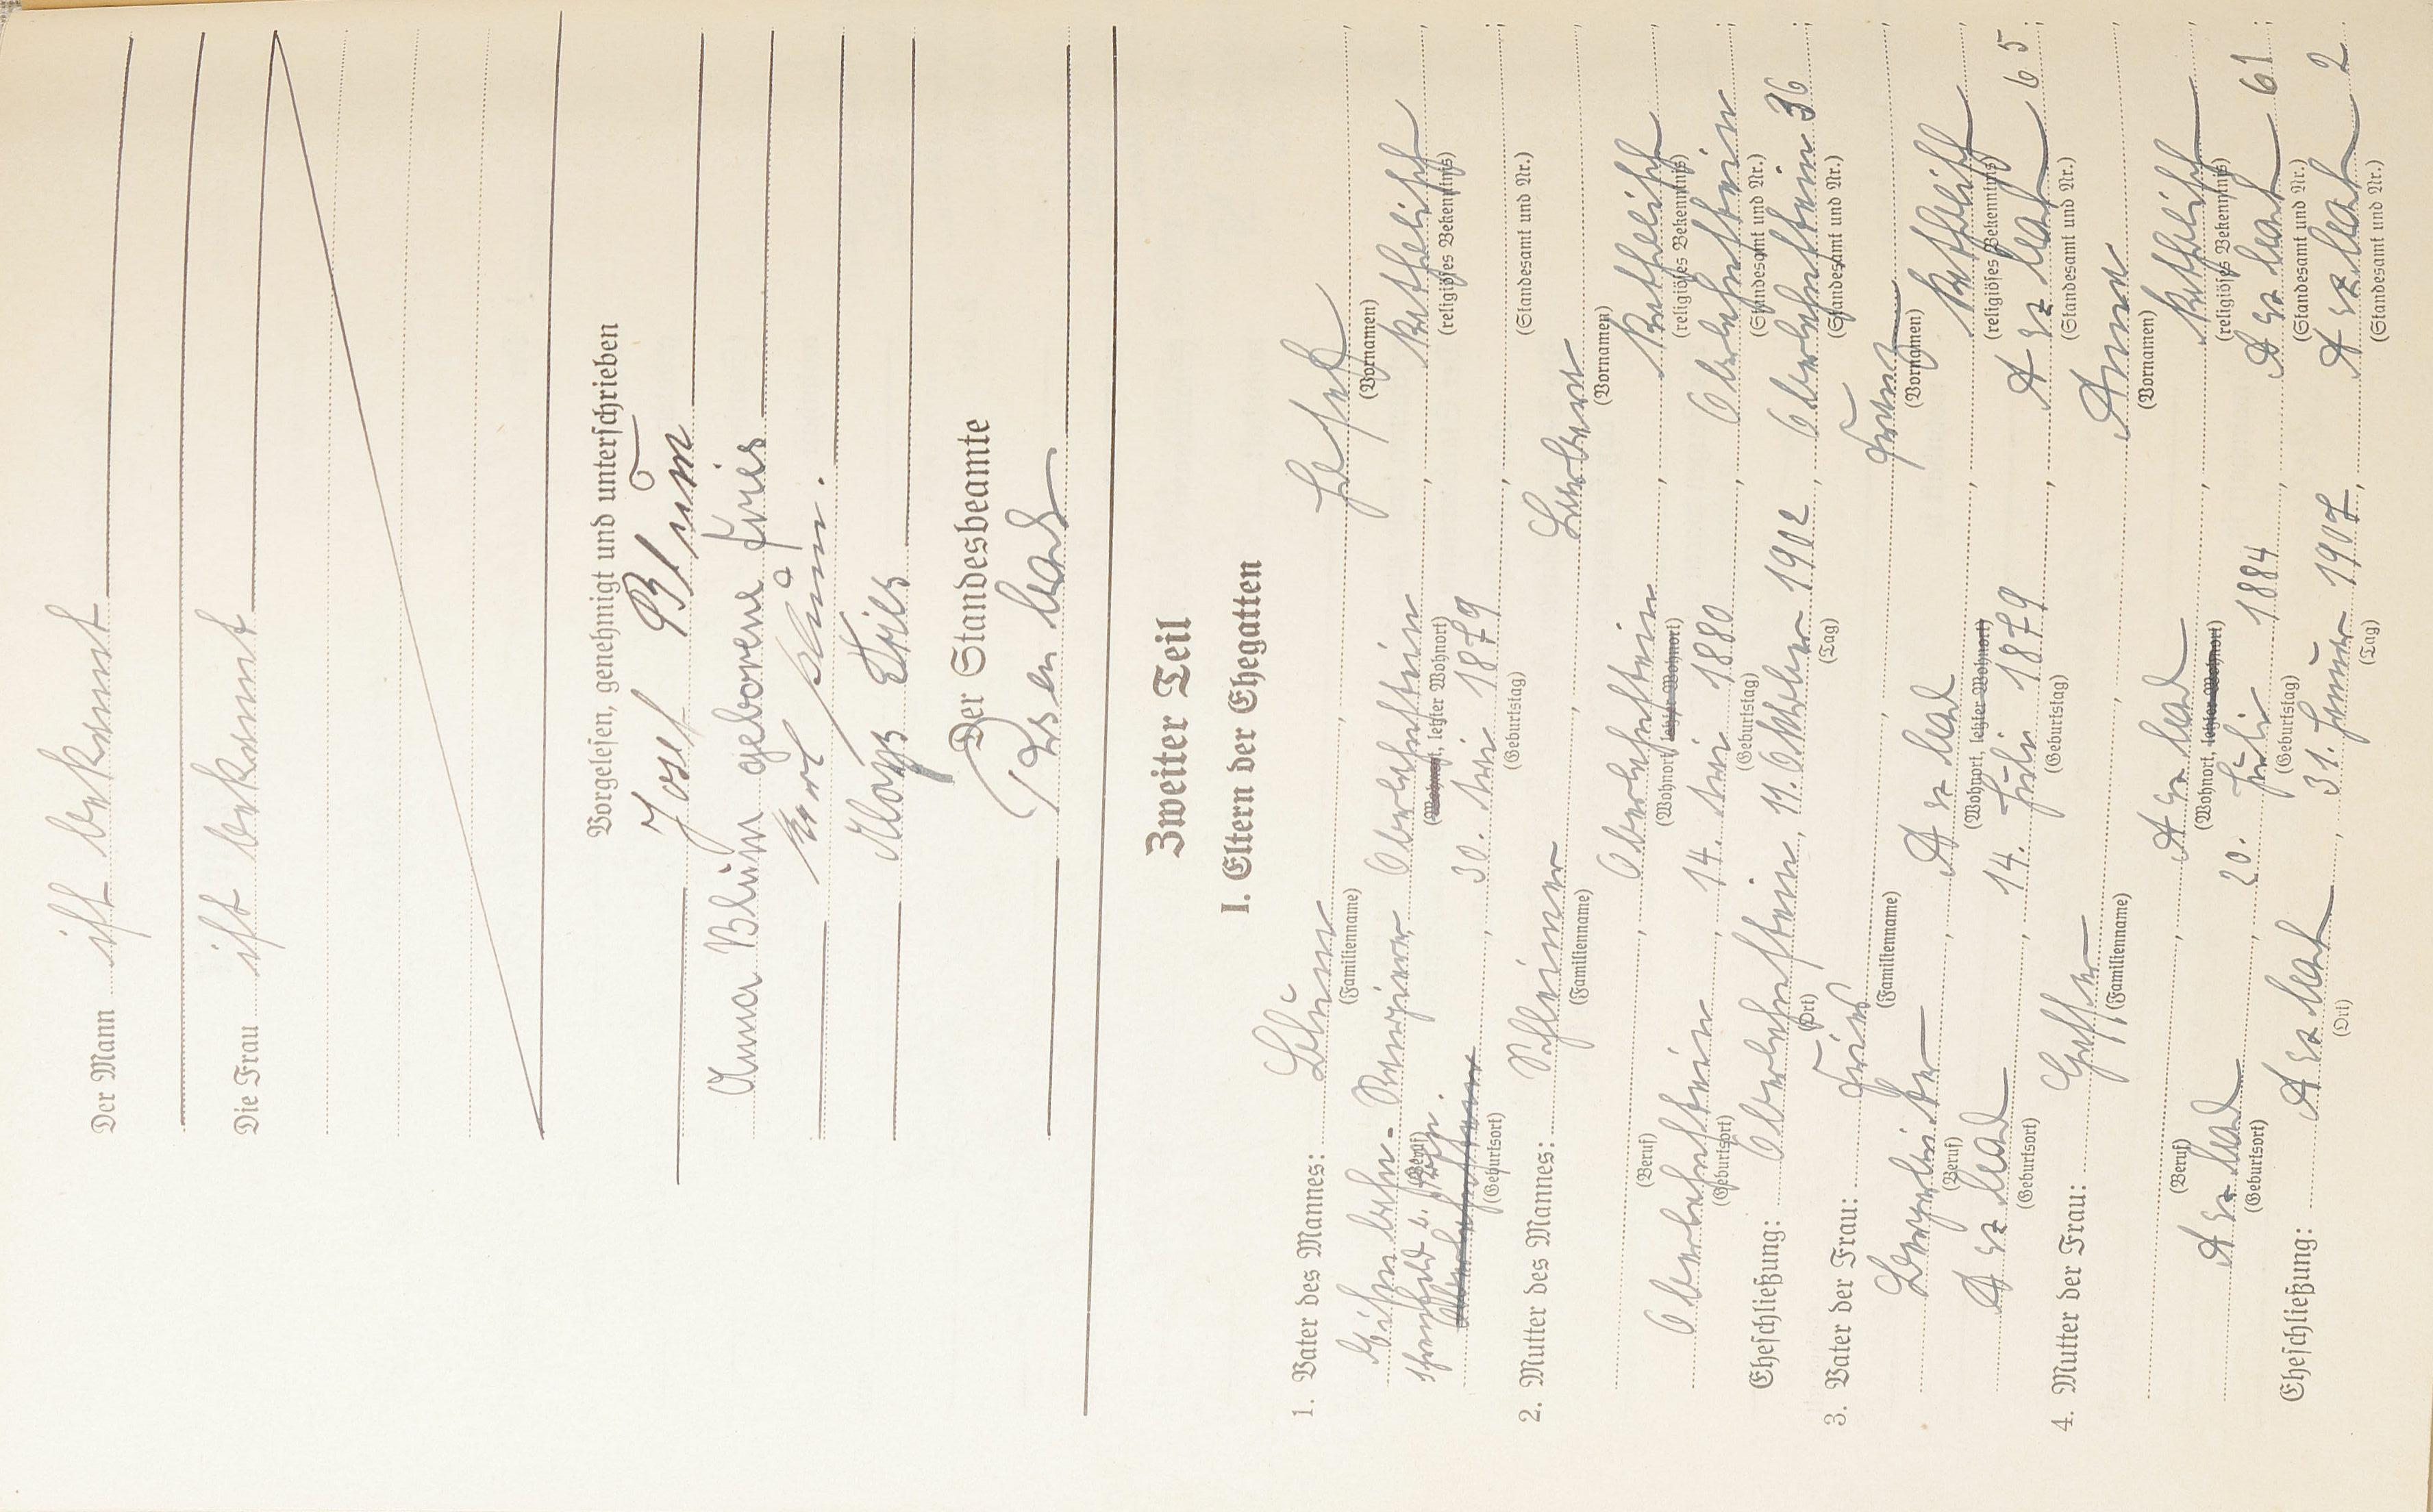 Der Mann ist bekannt
Die Frau ist bekannt
Vorgelesen, genehmigt und unterschrieben
Josef Blum
Anna Blum geborene Fries
Karl Blum.
Aloys Fries
Der Standesbeamte
Zweiter Teil
I. Eltern der Ehegatten
1. Vater des Mannes: Blum, Josef,
(Familienname) (Vornamen)
Eisenbahn- Oberlahnstein, katholisch,
(Beruf) (Wohnort, letzter Wohnort) (religiöses Bekenntnis)
30. Mai 1879
(Geburtsort) (Geburtstag) (Standesamt und Nr.)
2. Mutter des Mannes: Barbara,
(Familienname) (Vornamen)
Oberlahnstein, katholisch,
(Beruf) (Wohnort, letzter Wohnort) (religiöses Bekenntnis)
Oberlahnstein, 14. Mai 1880, Oberlahnstein;
(Geburtsort) (Geburtstag) (Standesamt und Nr.)
Eheschließung: Oberlahnstein, 11. Oktober 1902, Oberlahnstein 36;
(Ort) (Tag) (Standesamt und Nr.)
3. Vater der Frau: Fries, Franz,
(Familienname) (Vornamen)
Arzbach, katholisch,
(Beruf) (Wohnort, letzter Wohnort) (religiöses Bekenntnis)
Arzbach, 14. Juli 1879, Arzbach 65;
(Geburtsort) (Geburtstag) (Standesamt und Nr.)
4. Mutter der Frau: Anna,
(Familienname) (Vornamen)
Arzbach, katholisch,
(Beruf) (Wohnort, letzter Wohnort) (religiöses Bekenntnis)
Arzbach, 20. Juli 1884, Arzbach 61;
(Geburtsort) (Geburtstag) (Standesamt und Nr.)
Eheschließung: Arzbach, 31. Januar 1907, Arzbach 2
(Ort) (Tag) (Standesamt und Nr.)